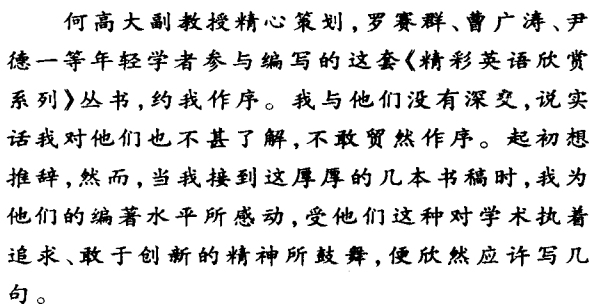 何高大副教授精心策划,罗赛群、曹广涛、尹
德一等年轻学者参与编写的这套《精彩英语欣赏
系列》丛书,约我作序。我与他们没有深交,说实
话我对他们也不甚了解,不敢贸然作序。起初想
推辞,然而,当我接到这厚厚的几本书稿时,我为
他们的编著水平所感动,受他们这种对学术执着
追求、敢于创新的精神所鼓舞,便欣然应许写几
句。